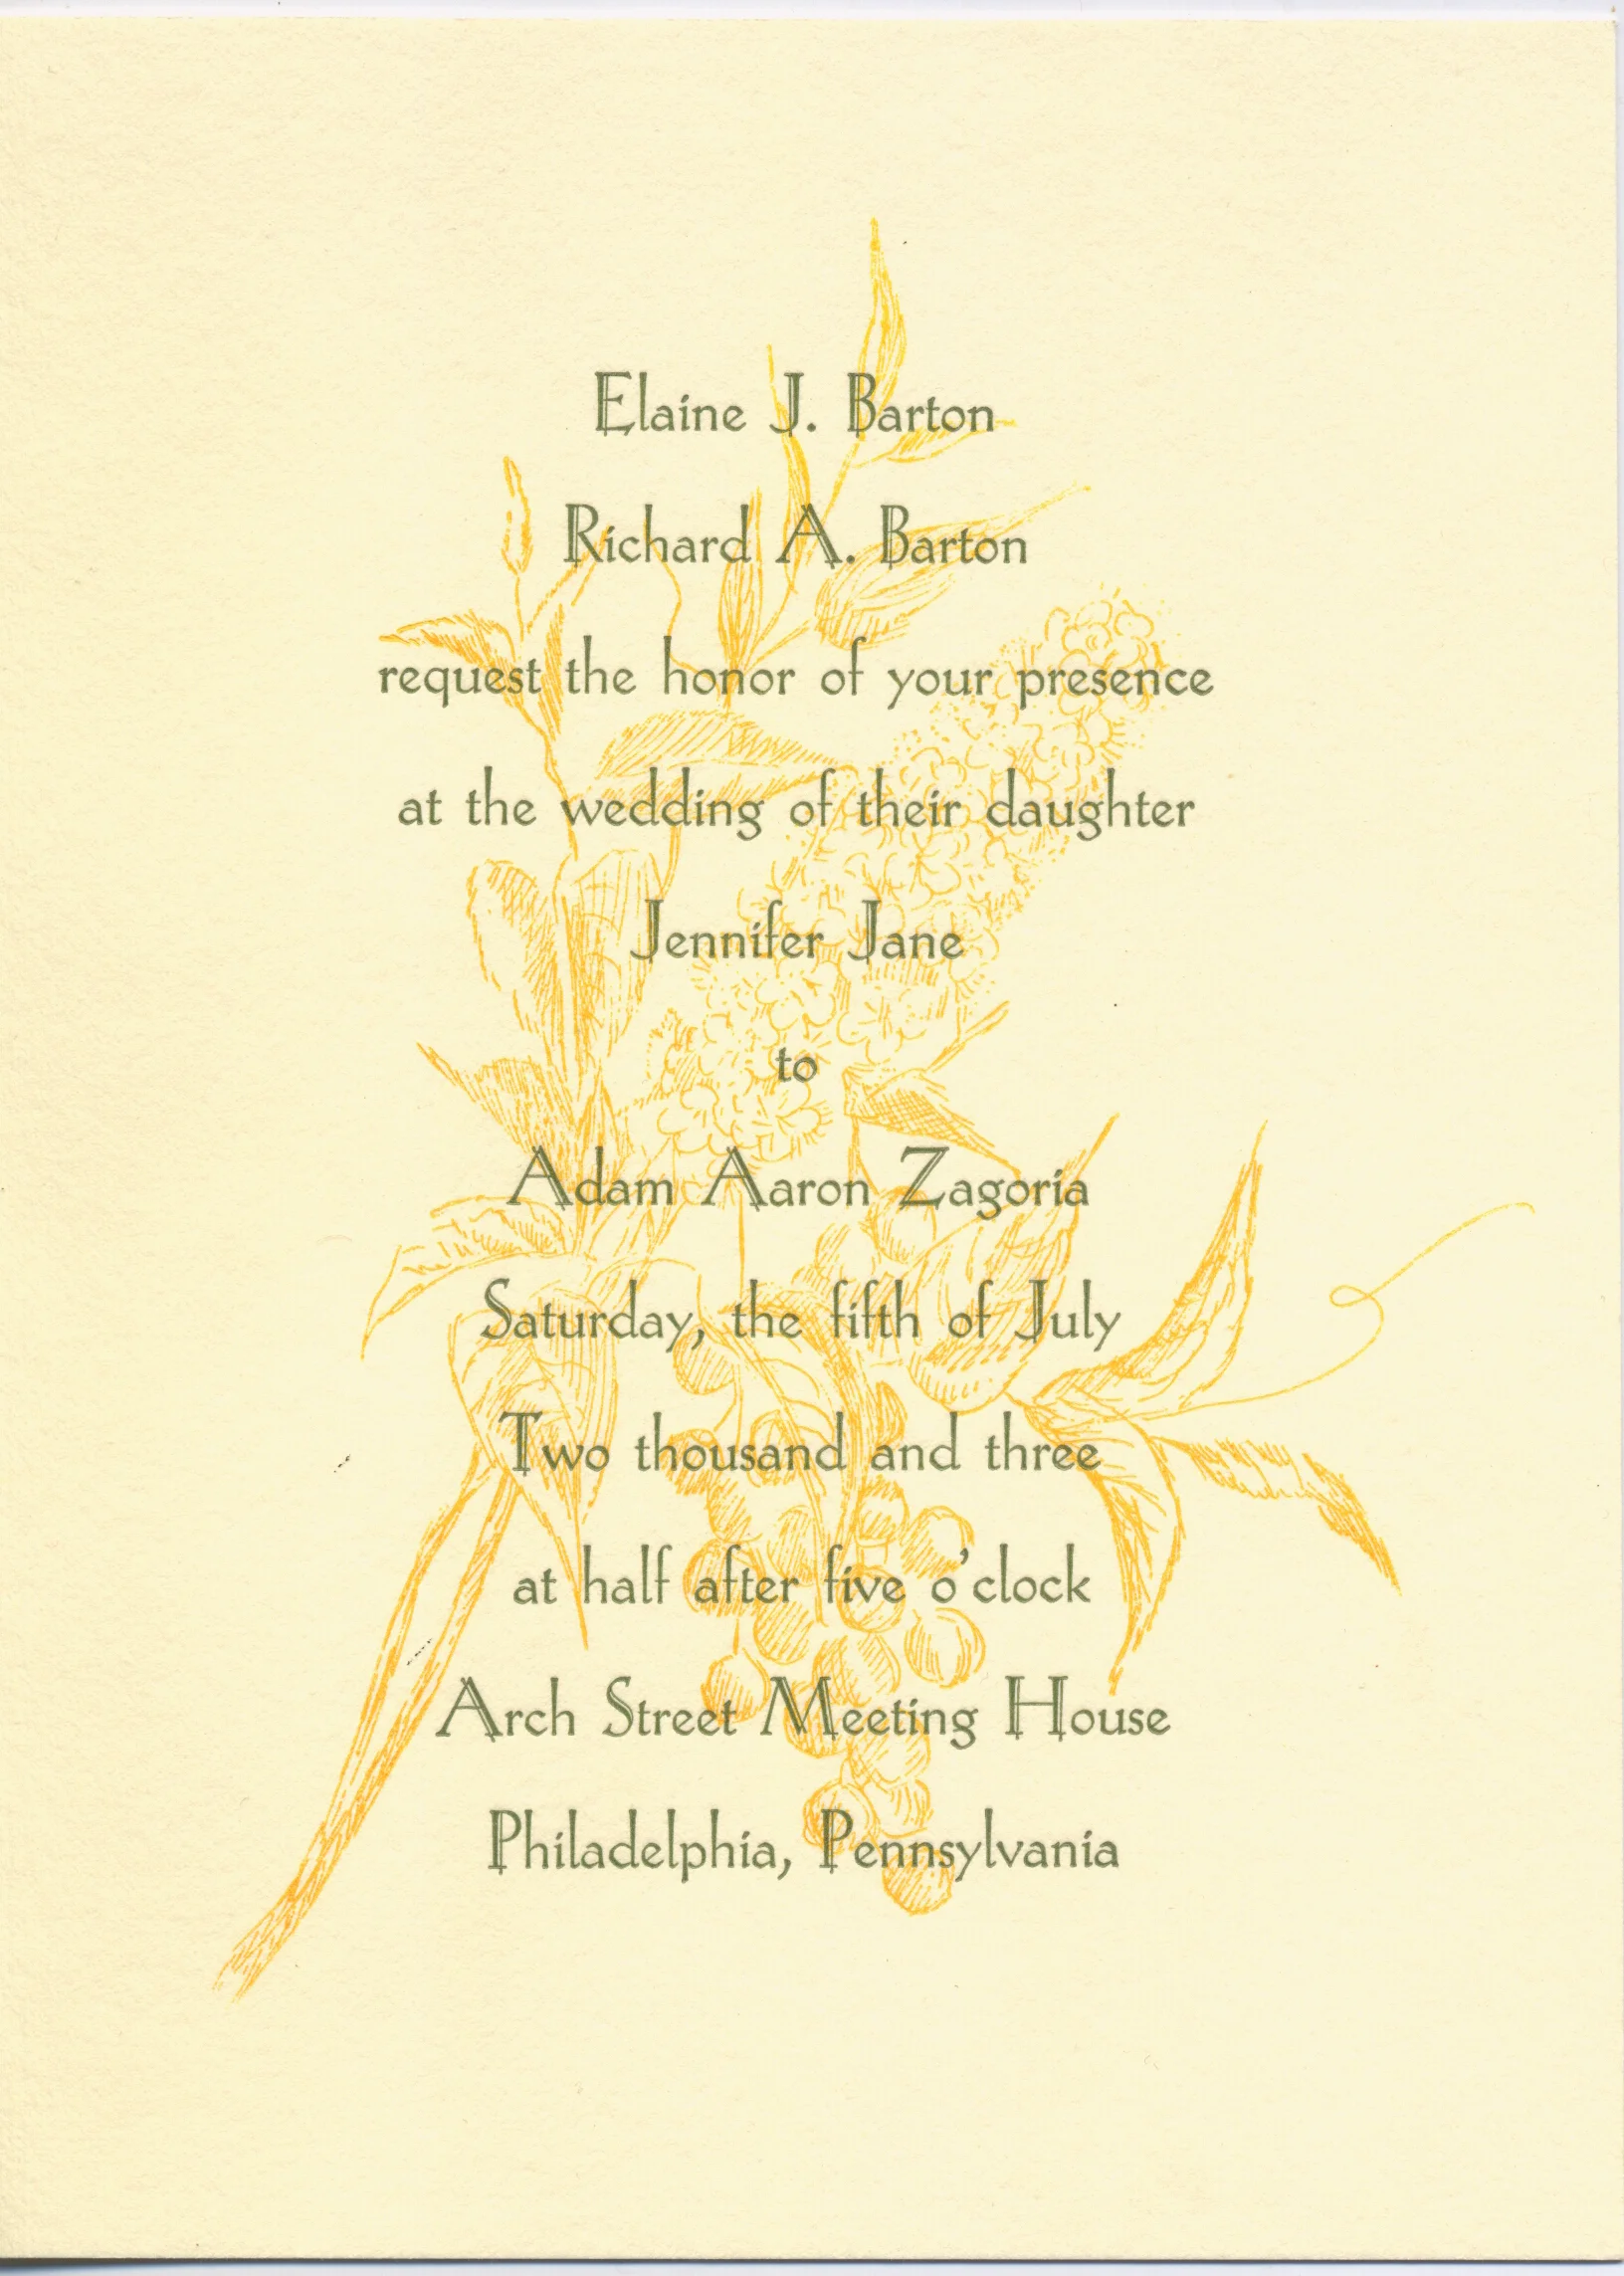 Elaine J. Barton
Richard A. Barton
request the honor of your presence
at the wedding of their daughter
Jennifer Jane
to
Adam Aaron Zagoria
Saturday, the fifth of July
Two thousand and three
at half after five o'clock
Arch Street Meeting House
Philadelphia, Pennsylvania